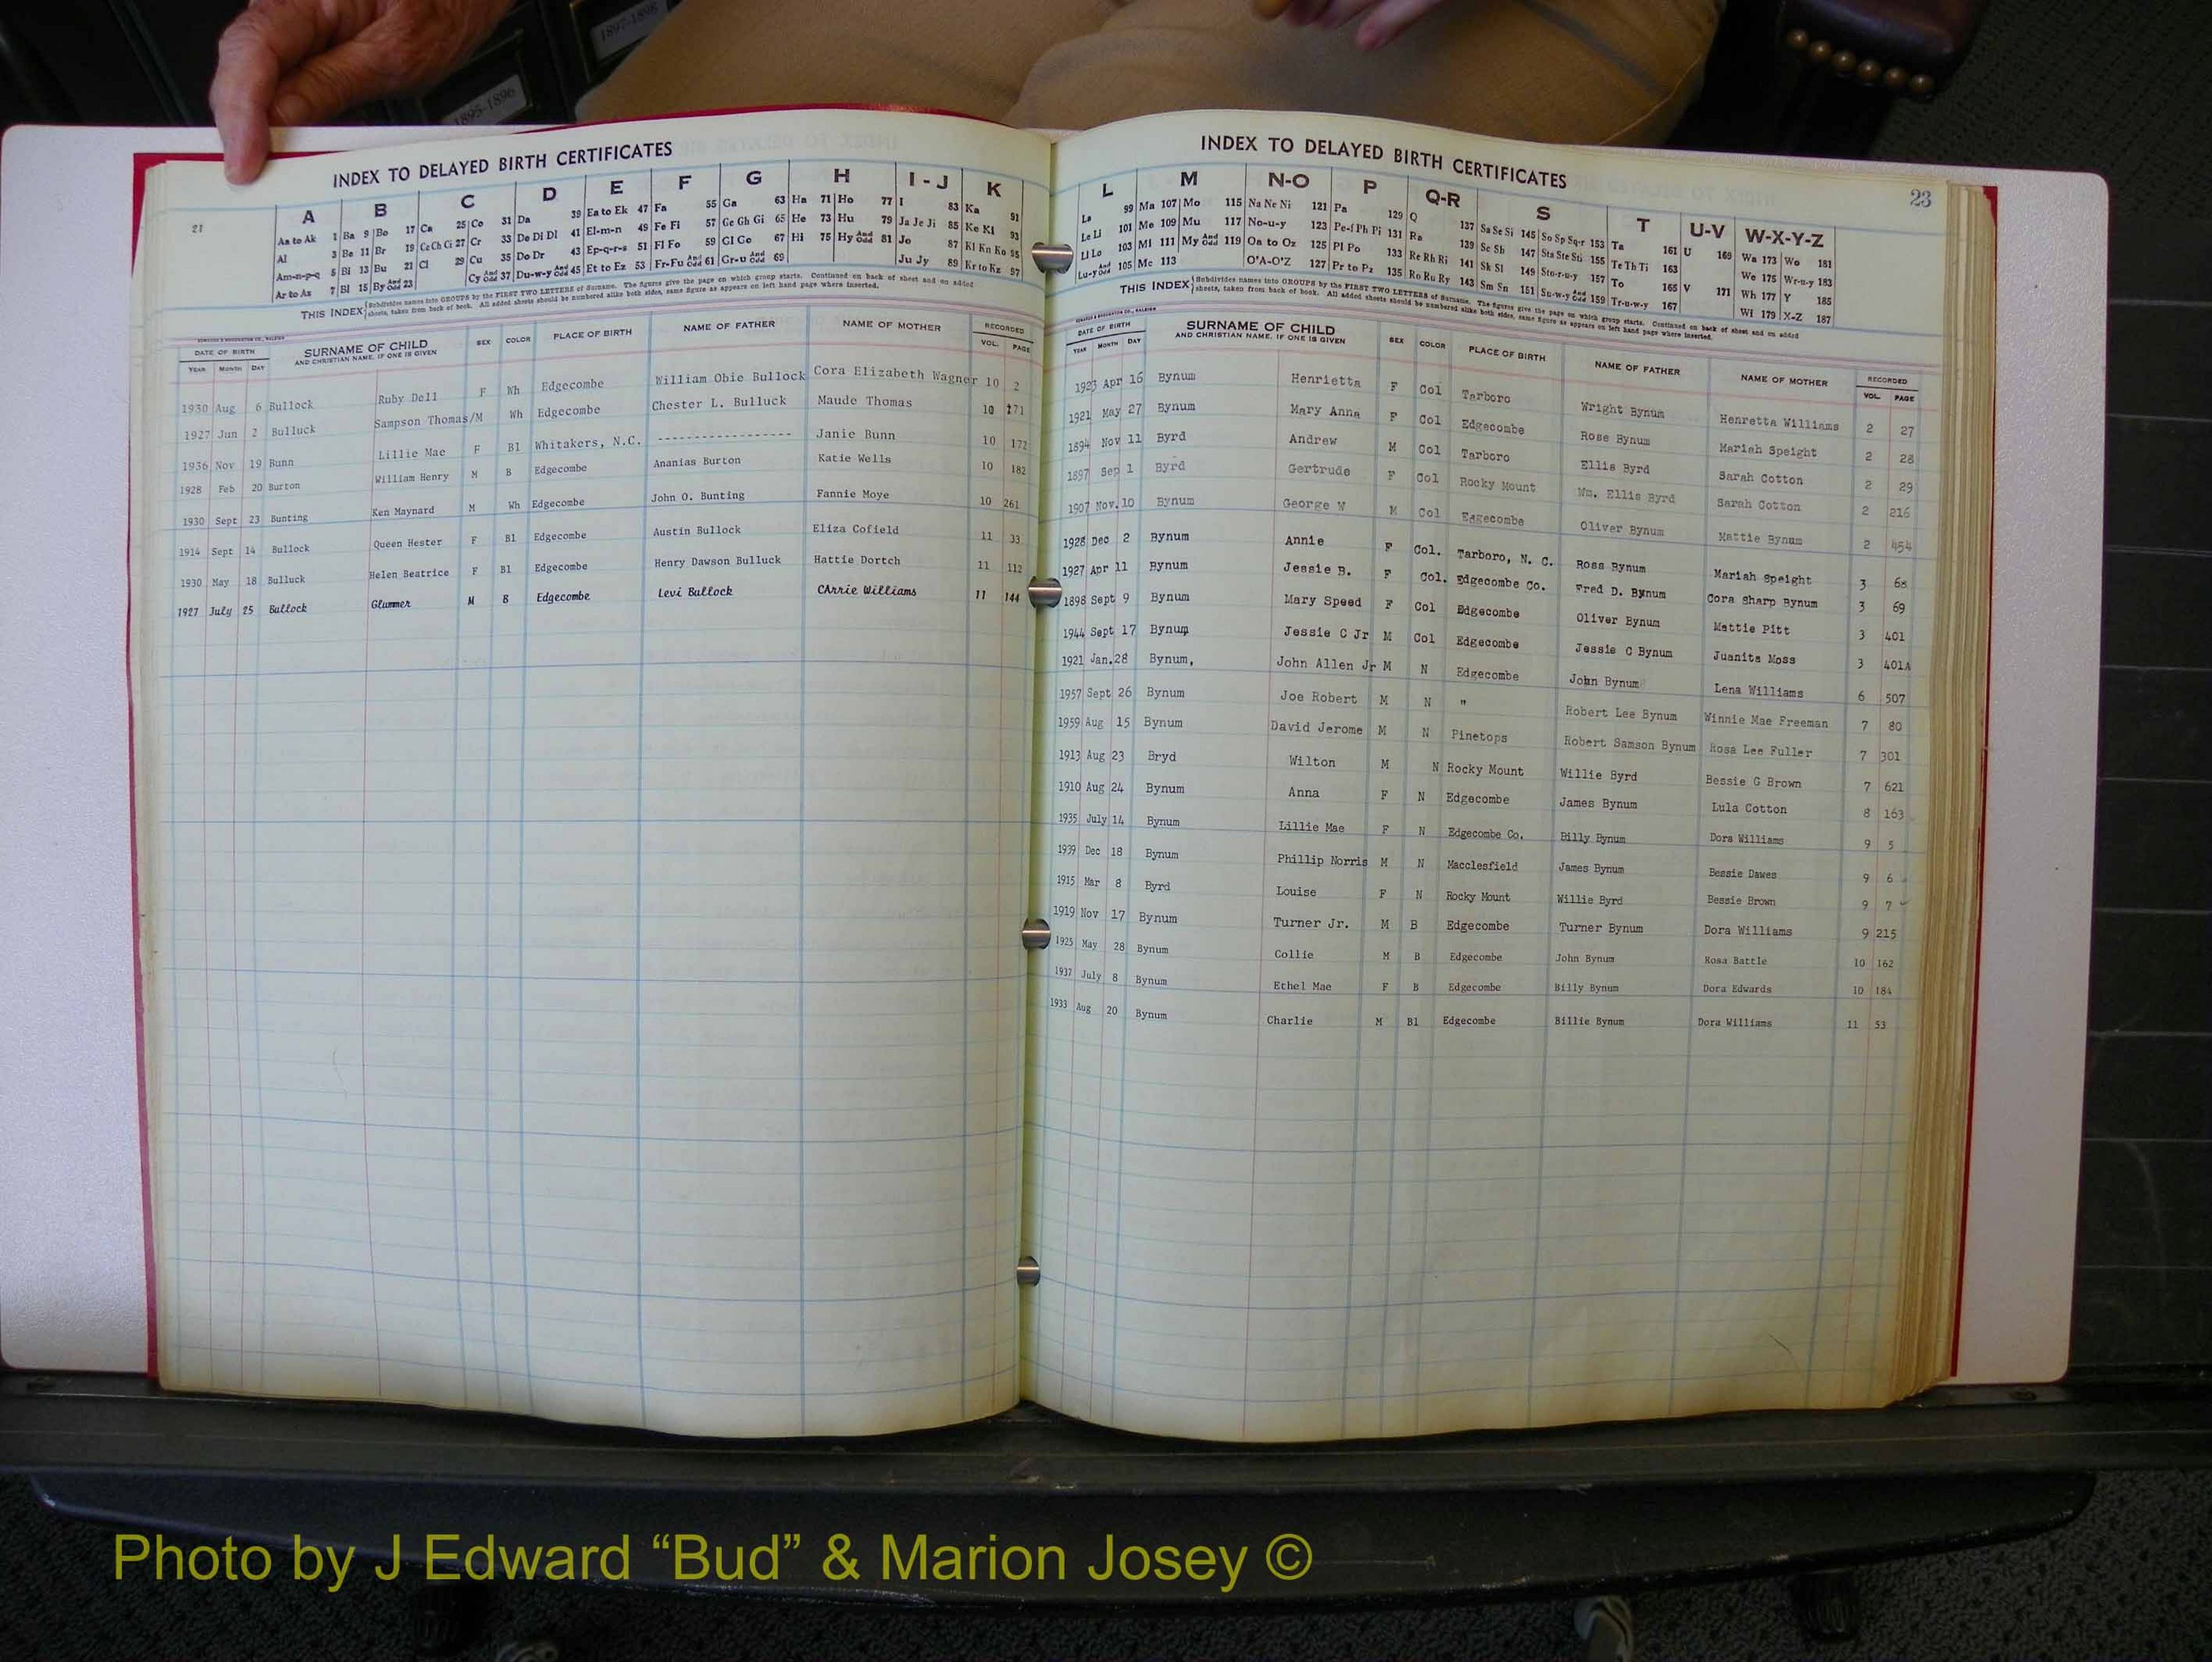 1897-1898
1895-1896
INDEX TO DELAYED BIRTH CERTIFICATES
21
A B C D E F G H I - J K
Aa to Ak 1 Ba 9 Bo 17 Ca 25 Co 31 Da 39 Ea to Ek 47 Fa 55 Ga 63 Ha 71 Ho 77 I 83 Ka 91
Al 3 Be 11 Br 19 Ce Ch Ci 27 Cr 33 De Di Dl 41 El-m-n 49 Fe Fi 57 Ge Gh Gi 65 He 73 Hu 79 Ja Je Ji 85 Ke Ki 93
Am-n-p-q 5 Bi 13 Bu 21 Cl 29 Cu 35 Do Dr 43 Ep-q-r-s 51 Fl Fo 59 Gl Go 67 Hi 75 Hy And Odd 81 Jo 87 Kl Kn Ko 95
Ar to Az 7 Bl 15 By And Odd 23 Cy And Odd 37 Du-w-y And Odd 45 Et to Ez 53 Fr-Fu And Odd 61 Gr-u And Odd 69 Ju Jy 89 Kr to Kz 97
THIS INDEX Subdivides names into GROUPS by the FIRST TWO LETTERS of Surname. The figures give the page on which group starts. Continued on back of sheet and on added
sheets, taken from back of book. All added sheets should be numbered alike both sides, same figure as appears on left hand page where inserted.
DATE OF BIRTH SURNAME OF CHILD SEX COLOR PLACE OF BIRTH NAME OF FATHER NAME OF MOTHER RECORDED
YEAR MONTH DAY AND CHRISTIAN NAME, IF ONE IS GIVEN VOL. PAGE
1930 Aug 6 Bullock Ruby Dell F Wh Edgecombe William Obie Bullock Cora Elizabeth Wagner 10 2
1927 Jun 2 Bulluck Sampson Thomas/M Wh Edgecombe Chester L. Bulluck Maude Thomas 10 171
1936 Nov 19 Bunn Lillie Mae F Bl Whitakers, N.C. ------------------ Janie Bunn 10 172
1928 Feb 20 Burton William Henry M B Edgecombe Ananias Burton Katie Wells 10 182
1930 Sept 23 Bunting Ken Maynard M Wh Edgecombe John O. Bunting Fannie Moye 10 261
1914 Sept 14 Bullock Queen Hester F Bl Edgecombe Austin Bullock Eliza Cofield 11 33
1930 May 18 Bulluck Helen Beatrice F Bl Edgecombe Henry Dawson Bulluck Hattie Dortch 11 112
1927 July 25 Bullock Glummer M B Edgecombe Levi Bullock CArrie Williams 11 144
INDEX TO DELAYED BIRTH CERTIFICATES
23
L M N-O P Q-R S T U-V W-X-Y-Z
La 99 Ma 107 Mo 115 Na Ne Ni 121 Pa 129 Q 137 Sa Se Si 145 So Sp Sq-r 153 Ta 161 U 169 Wa 173 Wo 181
Le Li 101 Me 109 Mu 117 No-u-y 123 Pe-f Ph Pi 131 Ra 139 Sc Sh 147 Sta Ste Sti 155 Te Th Ti 163 We 175 Wr-u-y 183
Ll Lo 103 Mi 111 My And Odd 119 Oa to Oz 125 Pl Po 133 Re Rh Ri 141 Sk Sl 149 Sto-r-u-y 157 To 165 V 171 Wh 177 Y 185
Lu-y And Odd 105 Mc 113 O'A-O'Z 127 Pr to Pz 135 Ro Ru Ry 143 Sm Sn 151 Su-w-y And Odd 159 Tr-u-w-y 167 Wi 179 X-Z 187
THIS INDEX Subdivides names into GROUPS by the FIRST TWO LETTERS of Surname. The figures give the page on which group starts. Continued on back of sheet and on added
sheets, taken from back of book. All added sheets should be numbered alike both sides, same figure as appears on left hand page where inserted.
DATE OF BIRTH SURNAME OF CHILD SEX COLOR PLACE OF BIRTH NAME OF FATHER NAME OF MOTHER RECORDED
YEAR MONTH DAY AND CHRISTIAN NAME, IF ONE IS GIVEN VOL. PAGE
1923 Apr 16 Bynum Henrietta F Col Tarboro Wright Bynum Henretta Williams 2 27
1921 May 27 Bynum Mary Anna F Col Edgecombe Rose Bynum Mariah Speight 2 28
1894 Nov 11 Byrd Andrew M Col Tarboro Ellis Byrd Sarah Cotton 2 29
1897 Sep 1 Byrd Gertrude F Col Rocky Mount Wm. Ellis Byrd Sarah Cotton 2 216
1907 Nov. 10 Bynum George W M Col Edgecombe Oliver Bynum Mattie Bynum 2 454
1928 Dec 2 Bynum Annie F Col. Tarboro, N. C. Ross Bynum Mariah Speight 3 68
1927 Apr 11 Bynum Jessie B. F Col. Edgecombe Co. Fred D. Bynum Cora Sharp Bynum 3 69
1898 Sept 9 Bynum Mary Speed F Col Edgecombe Oliver Bynum Mattie Pitt 3 401
1944 Sept 17 Bynum Jessie C Jr M Col Edgecombe Jessie C Bynum Juanita Moss 3 401A
1921 Jan. 28 Bynum, John Allen Jr M N Edgecombe John Bynum Lena Williams 6 507
1957 Sept 26 Bynum Joe Robert M N " Robert Lee Bynum Winnie Mae Freeman 7 80
1959 Aug 15 Bynum David Jerome M N Pinetops Robert Samson Bynum Rosa Lee Fuller 7 301
1913 Aug 23 Bryd Wilton M N Rocky Mount Willie Byrd Bessie G Brown 7 621
1910 Aug 24 Bynum Anna F N Edgecombe James Bynum Lula Cotton 8 163
1935 July 14 Bynum Lillie Mae F N Edgecombe Co. Billy Bynum Dora Williams 9 5
1939 Dec 18 Bynum Phillip Norris M N Macclesfield James Bynum Bessie Dawes 9 6
1915 Mar 8 Byrd Louise F N Rocky Mount Willie Byrd Bessie Brown 9 7
1919 Nov 17 Bynum Turner Jr. M B Edgecombe Turner Bynum Dora Williams 9 215
1925 May 28 Bynum Collie M B Edgecombe John Bynum Rosa Battle 10 162
1937 July 8 Bynum Ethel Mae F B Edgecombe Billy Bynum Dora Edwards 10 184
1933 Aug 20 Bynum Charlie M Bl Edgecombe Billie Bynum Dora Williams 11 53
Photo by J Edward “Bud” & Marion Josey ©